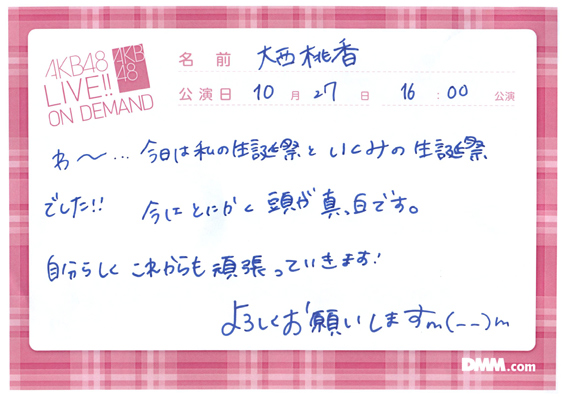 AKB48
LIVE!!
ON DEMAND
AKB
48
名前 大西桃香
公演日 10月27日 16:00公演
わ〜… 今日は私の生誕祭といくみの生誕祭
でした!! 今はとにかく頭が真っ白です。
自分らしくこれからも頑張っていきます!
よろしくお願いしますm(--)m
DMM.com